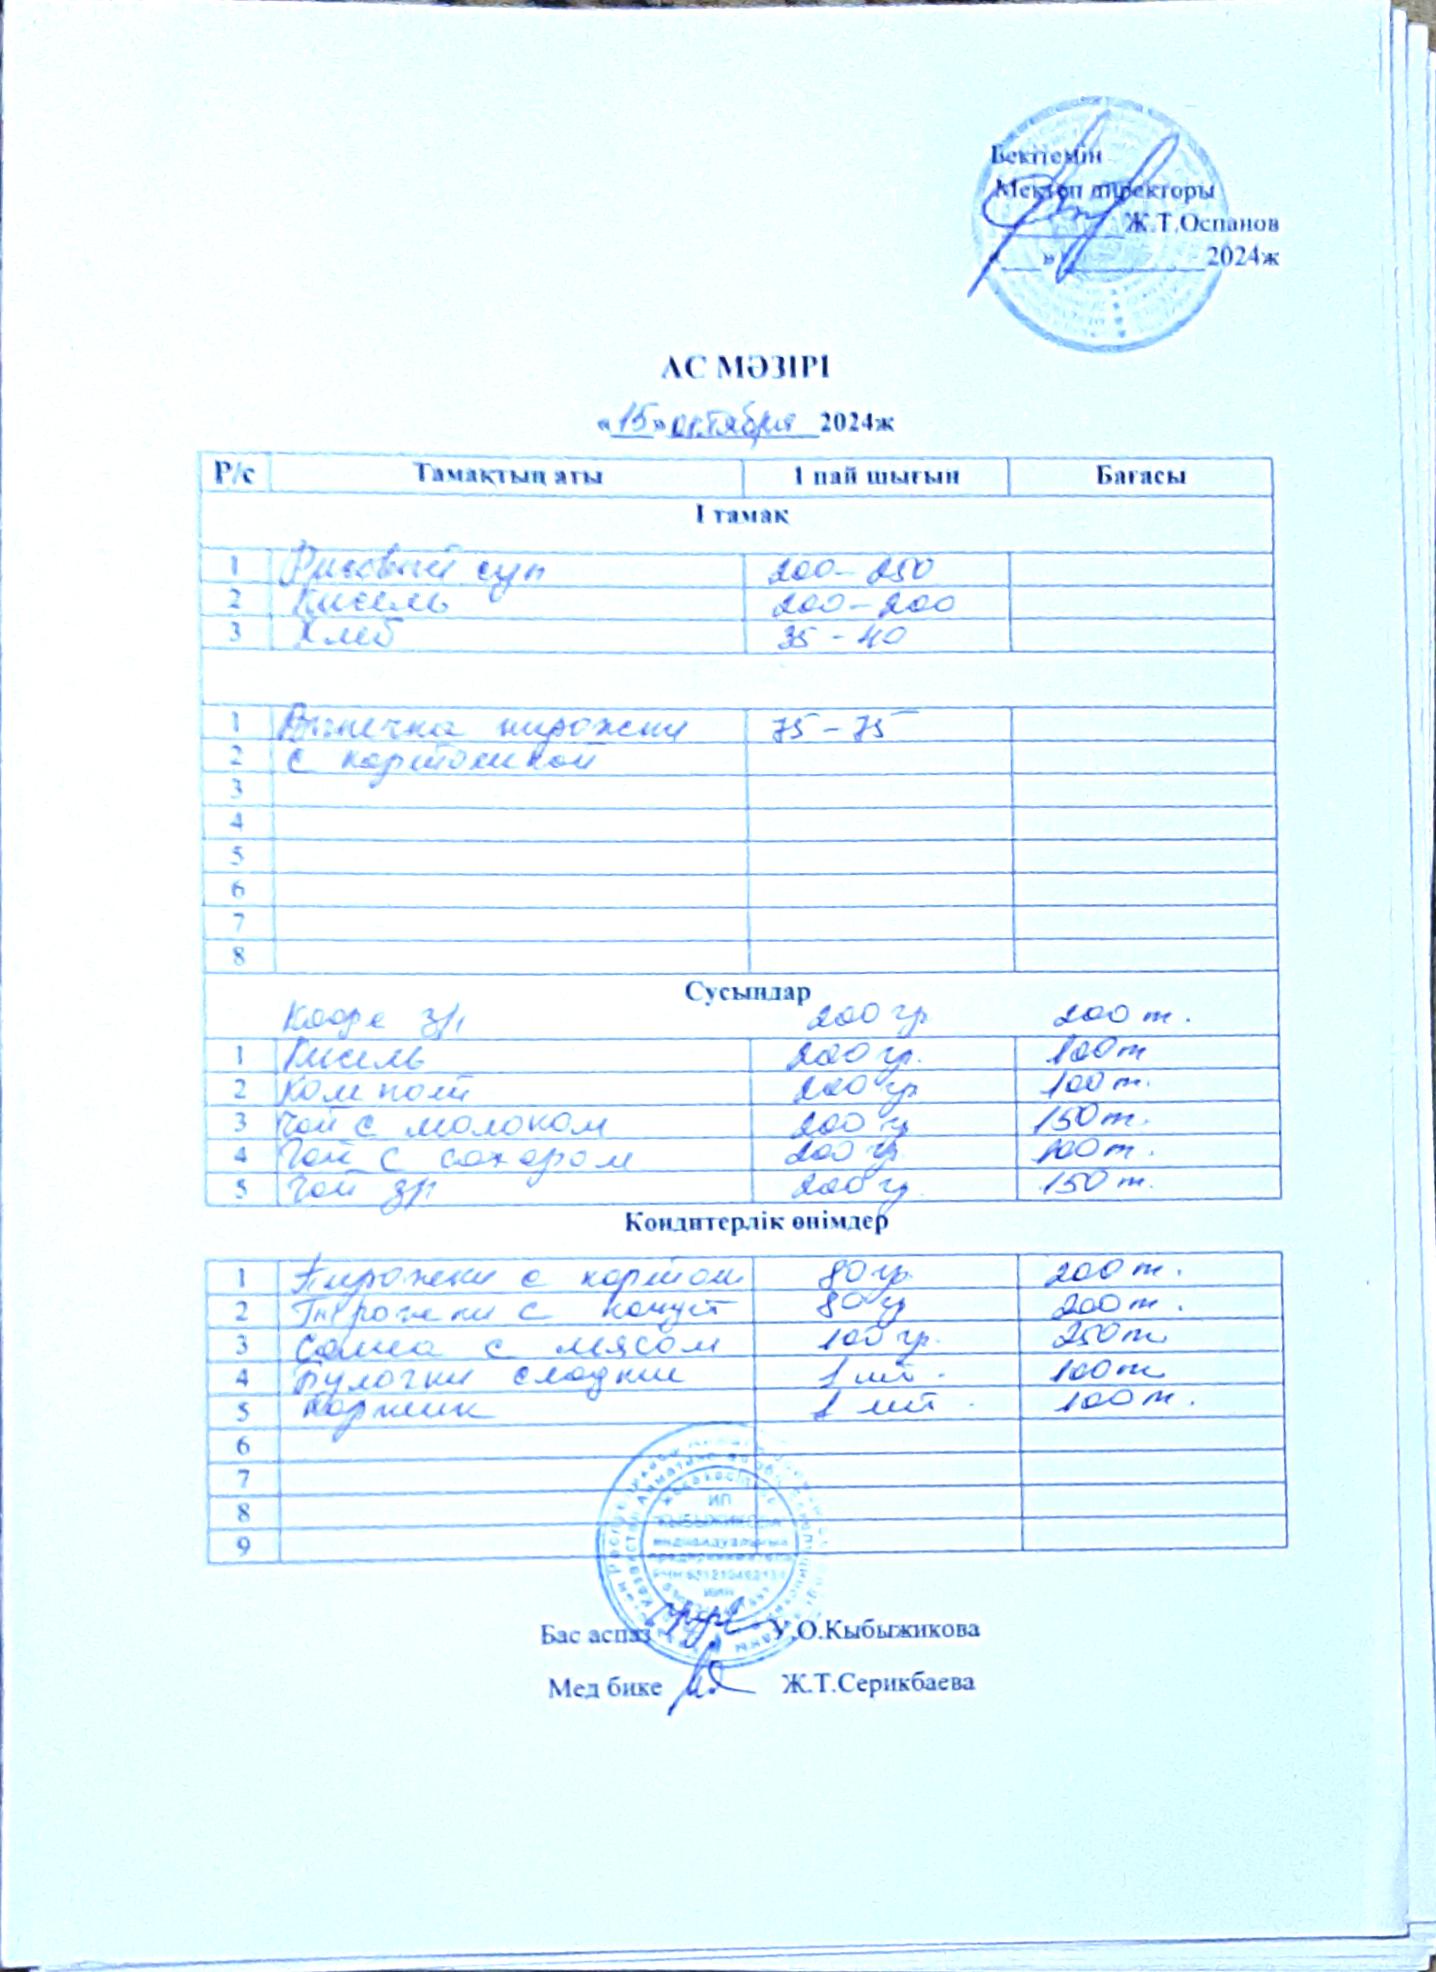 Бекітемін
Мектеп директоры
Ж.Т.Оспанов
«___»___________2024ж
АС МӘЗІРІ
«15» октября 2024ж
Р/с Тамақтың аты 1 пай шығын Бағасы
І тамақ
1 Рисовый суп 200-250
2 Кисель 200-200
3 Хлеб 35-40
1 Выпечка пирожки 75-75
2 с картошкой
3
4
5
6
7
8
Сусындар
Кофе 3/1 200 гр 200 т.
1 Кисель 200 гр. 100 т
2 Компот 200 гр 100 т.
3 Чай с молоком 200 гр 150 т.
4 Чай с сахаром 200 гр 100 т.
5 Чай 3/1 200 гр. 150 т.
Кондитерлік өнімдер
1 Пирожки с картош 80 гр. 200 т.
2 Пирожки с капуст 80 гр 200 т.
3 Самса с мясом 100 гр. 250 т
4 Булочки сладкие 1 шт. 100 т
5 Коржик 1 шт. 100 т.
6
7
8
9
ИП
КЫБЫЖИКОВА
Бас аспаз У.О.Кыбыжикова
Мед бике Ж.Т.Серикбаева